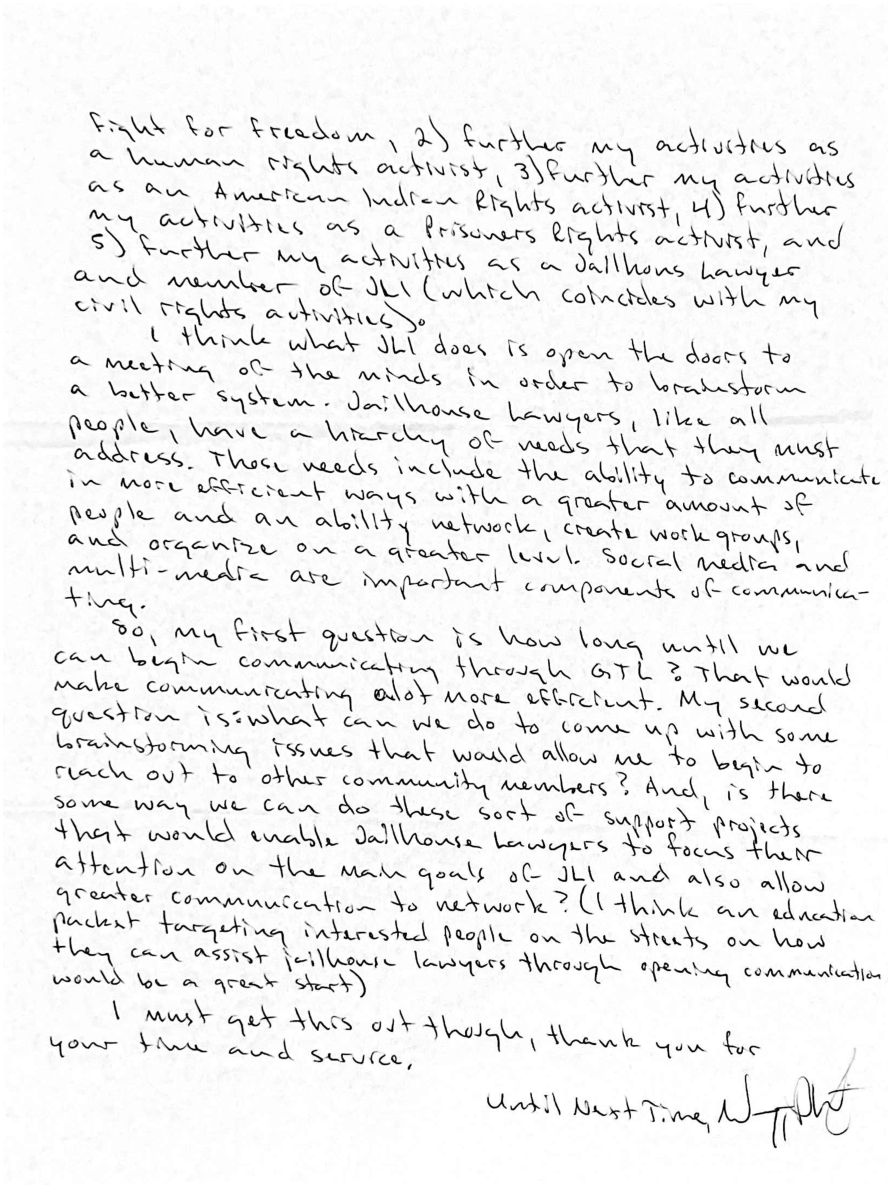 fight for freedom, 2) further my activities as
a human rights activist, 3) further my activities
as an American Indian Rights activist, 4) further
my activities as a Prisoners Rights activist, and
5) further my activities as a Jailhous Lawyer
and member of JLI (which coincides with my
civil rights activities).
I think what JLI does is open the doors to
a meeting of the minds in order to brainstorm
a better system. Jailhouse Lawyers, like all
people, have a hiarchy of needs that they must
address. Those needs include the ability to communicate
in more efficient ways with a greater amount of
people and an ability network, create work groups,
and organize on a greater level. Social media and
multi-media are important components of communica-
ting.
So, my first question is how long until we
can begin communicating through GTL? That would
make communicating alot more efficient. My second
question is: what can we do to come up with some
brainstorming issues that would allow me to begin to
reach out to other community members? And, is there
some way we can do these sort of support projects
that would enable Jailhouse Lawyers to focus their
attention on the main goals of JLI and also allow
greater communication to network? (I think an education
packet targeting interested people on the streets on how
they can assist jailhouse lawyers through opening communication
would be a great start)
I must get this out though, thank you for
your time and service.
Until Next Time,